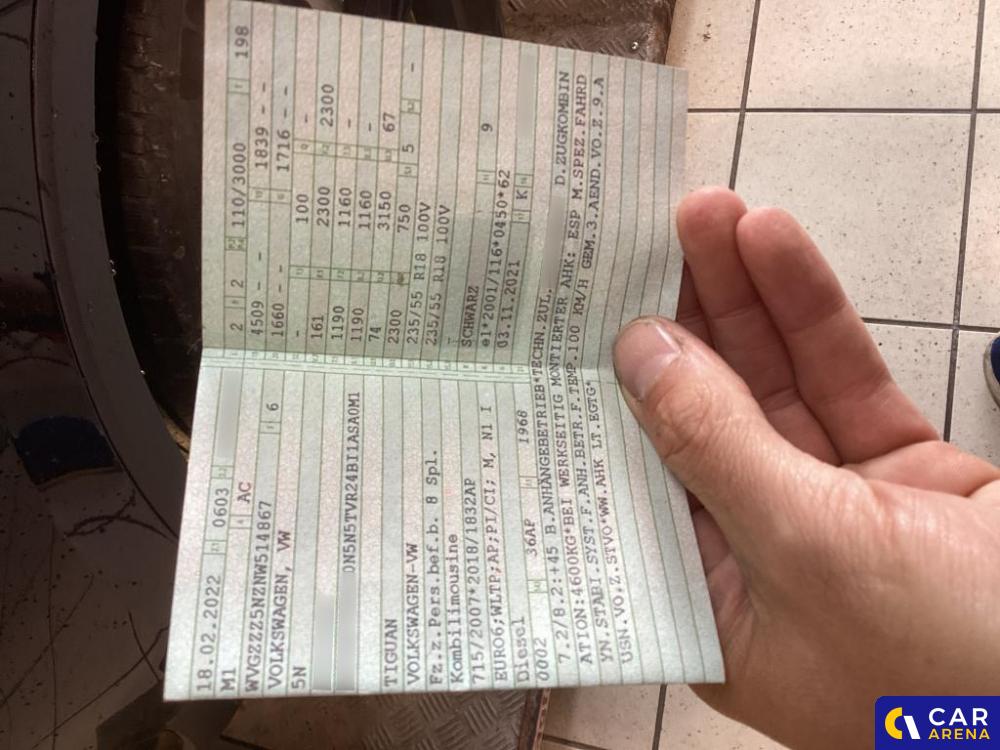 18.02.2022 0603
M1 AC
WVGZZZ5NZNW514867 6
VOLKSWAGEN, VW
5N
DN5N5TVR24BI1ASA0M1
TIGUAN
VOLKSWAGEN-VW
Fz.z.Pers.bef.b. 8 Spl.
Kombilimousine
715/2007*2018/1832AP
EURO6;WLTP;AP;PI/CI; M, N1 I
Diesel 36AP 1968
0002
2 2 110/3000 198
4509 - - 1839 - -
1660 - - 1716 - -
- 100 -
161 2300 2300
1190 1160 -
1190 1160 -
74 3150 67
2300 750 5 -
235/55 R18 100V
235/55 R18 100V
-
SCHWARZ 9
e1*2001/116*0450*62
03.11.2021 K
7.2/8.2:+45 B.ANHÄNGEBETRIEB*TECHN.ZUL. D.ZUGKOMBIN
ATION:4600KG*BEI WERKSEITIG MONTIERTER AHK: ESP M.SPEZ.FAHRD
YN.STABI.SYST.F.ANH.BETR.F.TEMP.100 KM/H GEM.3.AEND.VO.Z.9.A
USN.VO.Z.STVO*WW.AHK LT.EGTG*
CAR
ARENA